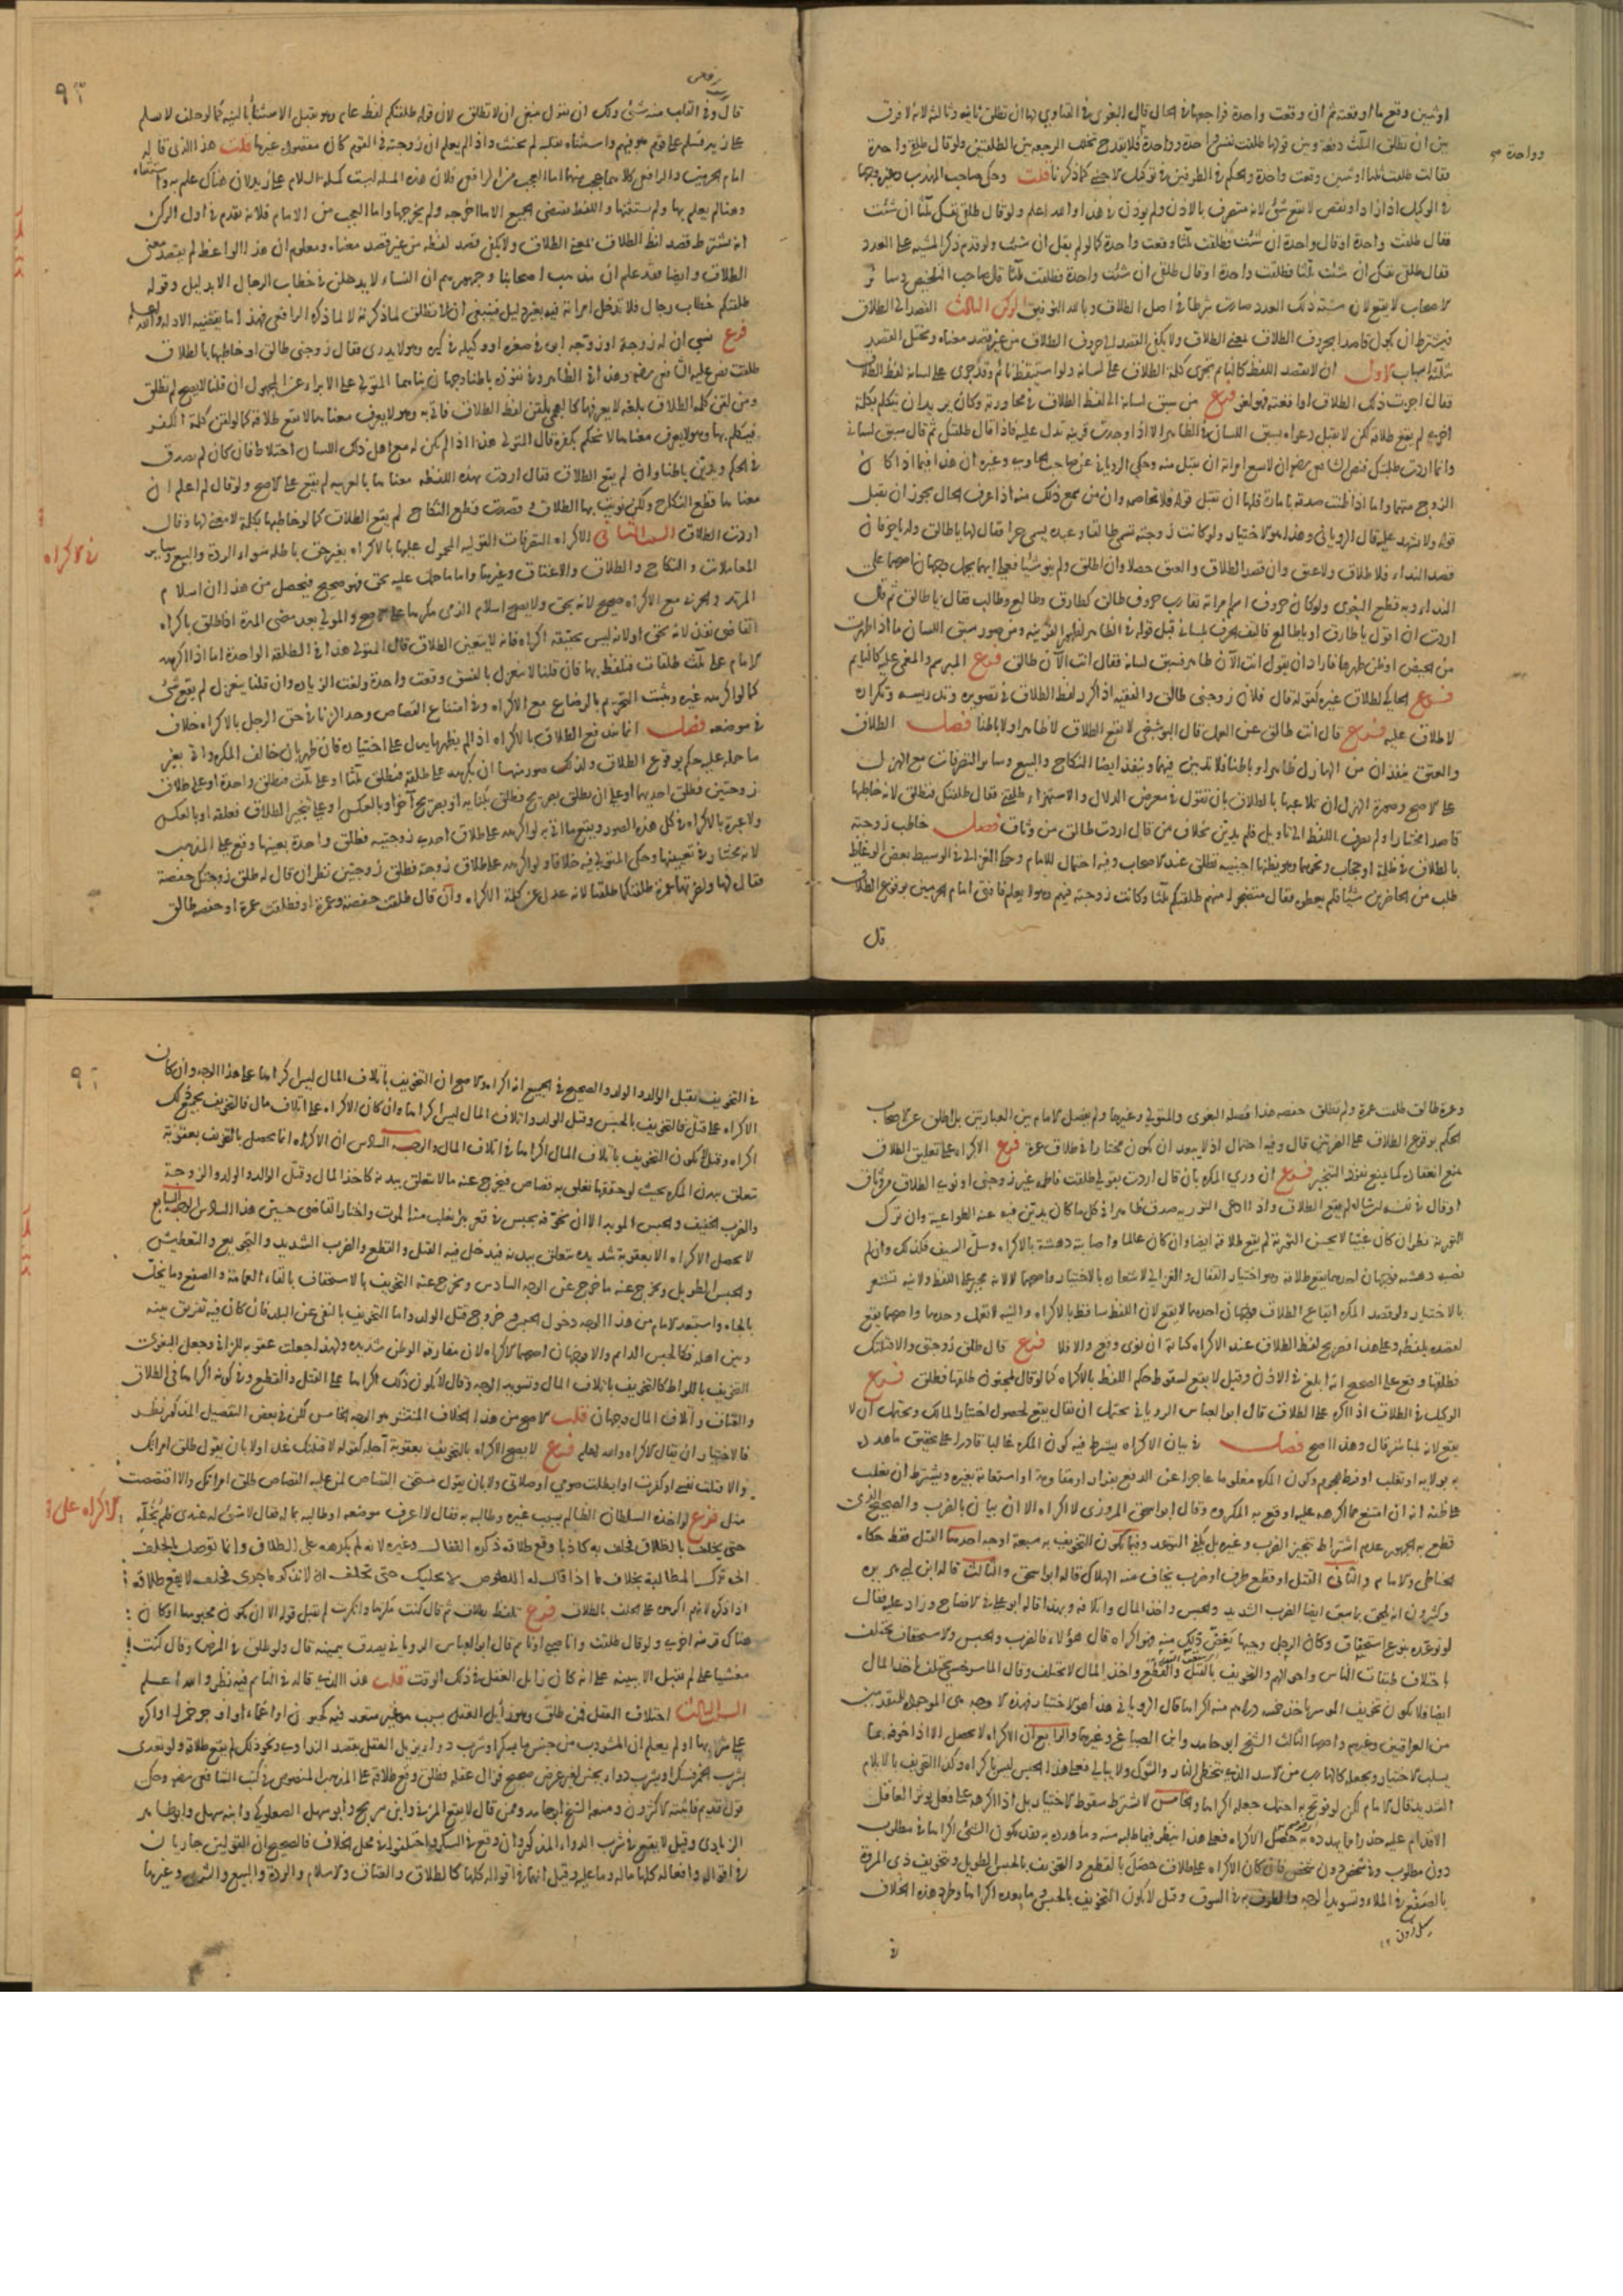 او ثنتين وقع ما اوقعته ثم ان وقعت واحدة فراجعها في الحال قال البغوي في الفتاوى لها ان تطلق ثانية وثالثة لانه لا فرق
وواحدة صح
بين ان تطلق الثلث دفعة وبين قولها طلقت نفسي واحدة وواحدة فلا يقدح تخلل الرجعة بين الطلقتين ولو قال طلق واحدة
فقالت طلقت ثلثا او ثنتين وقعت واحدة والحكم في الطرفين في توكيل الاجنبي كما ذكرنا قلت وحكى صاحب المهذب وغيره وجها
في الوكيل اذا زاد او نقص لا يقع شئ لانه متصرف بالاذن ولم يؤذن في هذا والله اعلم ولو قال طلقي نفسك ثلثا ان شئت
فقال طلقت واحدة او قال واحدة ان شئت فطلقت ثلثا وقعت واحدة كما لو لم يقل ان شئت ولو قدم ذكر المشية على العدد
فقال طلقي نفسك ان شئت ثلثا فطلقت واحدة او قال طلقي ان شئت واحدة فطلقت ثلثا قال صاحب التلخيص وسائر
الاصحاب لا يقع لان مشيته ذلك العدد صارت شرطا في اصل الطلاق وبالله التوفيق الركن الثالث القصد الى الطلاق
فيشترط ان يكون قاصدا لحروف الطلاق بمعنى الطلاق ولا يكفي القصد الى حروف الطلاق من غير قصد معناه ويختل القصد
بثلثة اسباب الاول ان لا يقصد اللفظ كالنايم تجري كلمة الطلاق على لسانه ولو استيقظ نائم وقد جرى على لسانه لفظ الطلاق
فقال اجزت ذلك الطلاق او اوقعته فهو لغو فرع من سبق لسانه الى لفظ الطلاق في محاورته وكان يريد ان يتكلم بكلمة
اخرى لم يقع طلاقه لكن لا تقبل دعواه سبق اللسان في الظاهر الا اذا وجدت قرينة تدل عليه فاذا قال طلقتك ثم قال سبق لساني
وانما اردت طلبتك فنص الشافعي رضي الله عنه انه لا يسع امراته ان تقبل منه وحكى الروياني عن صاحب الحاوي وغيره ان هذا فيما اذا كان
الزوج متهما واما اذا ظنت صدقه بامارة فلها ان تقبل قوله ولا تخاصمه وان من سمع ذلك منه اذا عرف الحال يجوز ان يقبل
قوله ولا يشهد عليه قال الروياني وهذا هو الاختيار ولو كانت زوجته تسمى طالقا وعبده يسمى حرا فقال لها يا طالق وله يا حر فان
قصد النداء فلا طلاق ولا عتق وان قصد الطلاق والعتق حصلا وان اطلق ولم ينو شيئا فعلى ايهما يحمل وجهان اصحهما على
النداء وبه قطع البغوي ولو كان حروف اسم امراته تقارب حروف طالق كطارق وطالع وطالب فقال يا طالق ثم قال
اردت ان اقول يا طارق او يا طالع فالتف الحرف بلساني قبل قوله في الظاهر لظهور القرينة ومن صور سبق اللسان ما اذا طهرت
من الحيض او ظن طهرها فاراد ان يقول انت الآن طاهر فسبق لسانه فقال انت الآن طالق فرع المبرسم والمغمى عليه كالنايم
فرع الحاكي لطلاق غيره كقوله قال فلان زوجتي طالق والفقيه اذا كرر لفظ الطلاق في تصويره وتدريسه وتكراره
لا طلاق عليه فرع قال انت طالق عن العمل قال البوشنجي لا يقع الطلاق لا ظاهرا ولا باطنا فصل الطلاق
والعتق ينفذان من الهازل ظاهرا وباطنا فلا تديين فيهما وينفذ ايضا النكاح والبيع وساير التصرفات مع الهزل
على الاصح وصورة الهزل ان يلاعبها بالطلاق بان تقول في معرض الدلال والاستهزاء طلقني فقال طلقتك فتطلق لانه خاطبها
قاصدا مختارا ولم يصرف اللفظ الى تاويل فلم يدين بخلاف من قال اردت طالق من وثاق فصل خاطب زوجته
بالطلاق في ظلمة او حجاب ونحوهما وهو يظنها اجنبية تطلق عند الاصحاب وفيه احتمال للامام وحكى الغزالي في الوسيط بعض الوعاظ
طلب من الحاضرين شيئا فلم يعطوه فقال متضجرا منهم طلقتكم ثلثا وكانت زوجته فيهم وهو لا يعلم فافتى امام الحرمين بوقوع الطلاق
قال
قال وفي القلب منه شئ ولك ان تقول ينبغي ان لا تطلق لان قوله طلقتكم لفظ عام وهو يقبل الاستثناء بالنية كما لو حلف لا يسلم
على زيد فسلم على قوم هو فيهم واستثناه بقلبه لم يحنث واذا لم يعلم ان زوجته في القوم كان مقصوده غيرها قلت هذا الذي قاله
امام الحرمين والرافعي كلاهما عجب منهما اما العجب من الرافعي فلان هذه المسئلة ليست كمسئلة السلام على زيد لان هناك علم به واستثناه
وهنا لم يعلم بها ولم يستثنها واللفظ يقتضي الجميع الا ما اخرجه ولم يخرجها واما العجب من الامام فلانه تقدم في اول الركن
انه يشترط قصد لفظ الطلاق بمعنى الطلاق ولا يكفي قصد لفظه من غير قصد معناه ومعلوم ان هذا الواعظ لم يقصد معنى
الطلاق وايضا فقد علم ان مذهب اصحابنا وجمهورهم ان النساء لا يدخلن في خطاب الرجال الا بدليل وقوله
طلقتكم خطاب رجال فلا تدخل امراته فيه بغير دليل فينبغي ان لا تطلق لما ذكرته لا لما ذكره الرافعي فهذا ما تقتضيه الادلة والله اعلم
فرع نسي ان له زوجة او زوجه ابوه في صغره او وكيله في كبره وهو لا يدري فقال زوجتي طالق او خاطبها بالطلاق
طلقت نص عليه الشافعي رضي الله عنه وهذا في الظاهر وفي نفوذه باطنا وجهان بناهما المتولي على الابراء عن المجهول ان قلنا لا يصح لم تطلق
ومن لقن كلمة الطلاق بلغة لا يعرفها كاعجمي يلقن لفظ الطلاق فاتى به وهو لا يعرف معناه لا يقع طلاقه كما لو لقن كلمة الكفر
فيتكلم بها وهو لا يعرف معناها لا نحكم بكفره قال المتولي هذا اذا لم يكن له مع اهل ذلك اللسان اختلاط فان كان لم يصدق
في الحكم ويدين باطنا وان لم يقع الطلاق فقال اردت بهذه اللفظة معناها بالعربية لم يقع على الاصح ولو قال لم اعلم ان
معناها قطع النكاح ولكن نويت بها الطلاق وقصدت قطع النكاح لم يقع الطلاق كما لو خاطبها بكلمة لا معنى لها وقال
اردت الطلاق السبب الثاني الاكراه التصرفات القولية المحمول عليها بالاكراه بغير حق باطلة سواء الردة والبيع وساير
في الاكراه
المعاملات والنكاح والطلاق والاعتاق وغيرها واما ما حمل عليه بحق فهو صحيح فيحصل من هذا ان اسلام
المرتد والحربي مع الاكراه صحيح لانه بحق ولا يصح اسلام الذمي مكرها على الاصح والمولي بعد مضي المدة اذا طلق باكراه
القاضي نفذ لانه بحق او لانه ليس بحقيقة اكراه فانه لا يتعين الطلاق قال المتولي هذا في الطلقة الواحدة اما اذا اكرهه
الامام على ثلث طلقات فتلفظ بها فان قلنا لا ينعزل بالفسق وقعت واحدة ولغت الزيادة وان قلنا ينعزل لم يقع شئ
كما لو اكرهه غيره ويثبت التحريم بالرضاع مع الاكراه وفي امتناع القصاص وحد الزنا في حق الرجل بالاكراه خلاف
في موضعه فصل انما يندفع الطلاق بالاكراه اذا لم يظهر ما يدل على اختياره فان ظهر بان خالف المكره واتى بغير
ما حمله عليه حكم بوقوع الطلاق ولذلك صور منها ان يكرهه على طلقة فيطلق ثلثا او على ثلث فيطلق واحدة او على طلاق
زوجتين فطلق احديهما او على ان يطلق بصريح فطلق بكناية او بصريح آخر او بالعكس او على تنجيز الطلاق فعلقه او بالعكس
ولا عبرة بالاكراه في كل هذه الصور ويقع ما اتى به لو اكرهه على طلاق احدى زوجتيه فطلق واحدة بعينها وقع على المذهب
لانه مختار في تعيينها وحكى المتولي فيه خلافا ولو اكرهه على طلاق زوجة فطلق زوجتين نظر ان قال له طلق زوجتك حفصة
فقال لها ولضرتها عمرة طلقتكما طلقتا لانه عدل عن كلمة الاكراه وان قال طلقت حفصة وعمرة او فطلقت عمرة او حفصة طالق
وعمرة طالق طلقت عمرة ولم تطلق حفصة هذا فصله البغوي والمتولي وغيرهما ولم يفصل الامام بين العبارتين بل اطلق عن الاصحاب
الحكم بوقوع الطلاق على الضرتين قال وفيه احتمال اذ لا يبعد ان يكون مختارا في طلاق عمرة فرع الاكراه على تعليق الطلاق
يمنع انعقاده كما يمنع نفوذ التنجيز فرع ان ورى المكره بان قال اردت بقولي طلقت فاطمة غير زوجتي او نوى الطلاق من وثاق
او قال في نفسه ان شاء الله لم يقع الطلاق واذا ادعى التورية صدق ظاهرا في كل ما كان يدين فيه عند الطواعية وان ترك
التورية نظر ان كان غبيا لا يحسن التورية لم يقع طلاقه ايضا وان كان عالما واصابته دهشة بالاكراه وسل السيف فكذلك وان لم
تصبه دهشة فوجهان احدهما يقع طلاقه وهو اختيار القفال والغزالي لاشعاره بالاختيار واصحهما لا لانه مجبر على اللفظ ولا نية تشعر
بالاختيار ولو قصد المكره ايقاع الطلاق فوجهان احدهما لا يقع لان اللفظ ساقط بالاكراه والنية لا تعمل وحدها واصحهما يقع
لقصده بلفظه وعلى هذا فصريح لفظ الطلاق عند الاكراه كناية ان نوى وقع والا فلا فرع قال طلق زوجتي والا قتلتك
فطلقها وقع على الصحيح لانه ابلغ في الاذن وقيل لا يقع لسقوط حكم اللفظ بالاكراه كما لو قال لمجنون طلقها فطلق فرع
الوكيل في الطلاق اذا اكره على الطلاق قال ابو العباس الروياني يحتمل ان يقال يقع لحصول اختيار المالك ويحتمل ان لا
يقع لانه المباشر قال وهذا اصح فصل في بيان الاكراه يشترط فيه كون المكره غالبا قادرا على تحقيق ما هدد
به بولاية او تغلب او فرط هجوم وكون المكره مغلوبا عاجزا عن الدفع بفرار او مقاومة او استعانة بغيره ويشترط ان يغلب
على ظنه انه ان امتنع مما اكرهه عليه اوقع به المكروه وقال ابو اسحق المروزي لا اكراه الا ان ينال بالضرب والصحيح الذي
قطع به الجمهور عدم اشتراط تنجيز الضرب وغيره بل يكفي التوعد وفيما يكون التخويف به سبعة اوجه احدها القتل فقط حكاه
الحناطي والامام والثاني القتل او قطع طرف او ضرب يخاف منه الهلاك قاله ابو اسحق والثالث قاله ابن ابي هريرة
وكثيرون انه يلحق بما سبق ايضا الضرب الشديد والحبس واخذ المال واتلافه وبهذا قال ابو علي في الافصاح وزاد عليه فقال
لو توعده بنوع استخفاف وكان الرجل وجيها يغض ذلك منه فهو اكراه قال هؤلاء فالضرب والحبس والاستخفاف يختلف
باختلاف طبقات الناس واحوالهم والتخويف بالقتل والقطع واخذ المال لا يختلف وقال الماسرخسي يختلف باخذ المال
ايضا فلا يكون تخويف الموسر باخذ خمسة دراهم منه اكراها قال الروياني هذا هو الاختيار فهذه الاوجه هي الموجودة للمتقدمين
من العراقيين وغيرهم واصحها الثالث الشيخ ابو حامد وابن الصباغ وغيرهما والرابع ان الاكراه لا يحصل الا اذا خوفه بما
يسلب الاختيار ويجعله كالهارب من الاسد الذي يتخطى النار والشوك ولا يبالي فعلى هذا الحبس ليس باكراه وكذا التخويف بالايلام
الشديد قال الامام لكن لو فوتح به احتمل جعله اكراها والخامس لا يشترط سقوط الاختيار بل اذا اكرهه على فعل يؤثر العاقل
الاقدام عليه حذرا مما يهدده به حصل الاكراه فعلى هذا ينظر فيما طلبه منه وما هدده به فقد يكون الشئ اكراها في مطلوب
دون مطلوب وفي شخص دون شخص فان كان الاكراه على طلاق حصل بالقطع والتخويف بالحبس الطويل وتخويف ذي المروة
بالصفع في الملا وتسويد الوجه والطوف به في السوق وقيل لا يكون التخويف بالحبس وما بعده اكراها وطرد هذا الخلاف
في التخويف بقتل الوالد والولد والصحيح في الجميع انه اكراه والاصح ان التخويف باتلاف المال ليس اكراها على هذا الوجه وان كان
الاكراه على قتل فالتخويف بالحبس وقتل الولد واتلاف المال ليس اكراها وان كان الاكراه على اتلاف مال فالتخويف بجميع ذلك
اكراه وقيل لا يكون التخويف باتلاف المال اكراها في اتلاف المال والوجه السادس ان الاكراه انما يحصل بالتخويف بعقوبة
تتعلق ببدن المكره بحيث لو حققها تعلق به قصاص فيخرج عنه ما لا يتعلق ببدنه كاخذ المال وقتل الوالد والولد والزوجة
والضرب الخفيف والحبس المؤبد الا ان يخوفه بحبس في قعر بئر يغلب منه الموت واختار القاضي حسين هذا السادس الوجه السابع
لا يحصل الاكراه الا بعقوبة شديدة تتعلق ببدنه فيدخل فيه القتل والقطع والضرب الشديد والتجويع والتعطيش
والحبس الطويل ويخرج عنه ما خرج عن الوجه السادس ويخرج عنه التخويف بالاستخفاف بالقاء العمامة والصفع وما يخل
بالجاه واستبعد الامام من هذا الوجه دخول الحبس في خروج قتل الولد واما التخويف بالنفي عن البلد فان كان فيه تفريق بينه
وبين اهله فكالحبس الدائم والا فوجهان اصحهما اكراه لان مفارقة الوطن شديدة ولهذا جعلت عقوبة للزاني وجعل البغوي
التخويف باللواط كالتخويف باتلاف المال وتسويد الوجه وقال لا يكون ذلك اكراها على القتل والقطع وفي كونه اكراها في الطلاق
والعتاق واتلاف المال وجهان قلت الاصح من هذا الخلاف المنتشر هو الوجه الخامس لكن في بعض التفصيل المذكور نظر
فالاختيار ان يقال الاكراه والله اعلم فرع لا يصح الاكراه بالتخويف بعقوبة آجلة كقوله لاقتلنك غدا ولا بان يقول طلق امراتك
والا قتلت نفسي او كفرت او ابطلت صومي او صلاتي ولا بان يقول مستحق القصاص لمن عليه القصاص طلق امراتك والا اقتصصت
الاكراه على
منك فرع لو اخذه السلطان الظالم بسبب غيره وطالبه به فقال لا اعرف موضعه او طالبه بماله فقال لا شئ له عندي فلم يخله
حتى يحلف بالطلاق فحلف به كاذبا وقع طلاقه ذكره القفال وغيره لانه لم يكرهه على الطلاق وانما توصل بالحلف
الى ترك المطالبة بخلاف ما اذا قال له اللصوص لا نخليك حتى تحلف ان لا تذكر ما جرى فحلف لا يقع طلاقه
اذا ذكره لانهم اكرهوه على الحلف بالطلاق فرع تلفظ بطلاق ثم قال كنت مكرها وانكرت لم يقبل قوله الا ان يكون محبوسا او كان
هناك قرينة اخرى ولو قال طلقت وانا صبي او نائم قال ابو العباس الروياني يصدق بيمينه قال ولو طلق في المرض وقال كنت
مغشيا علي لم يقبل الا ببينة على انه كان زايل العقل في ذلك الوقت قلت هذا الذي قاله في النايم فيه نظر والله اعلم
السبب الثالث اختلاف العقل فمن طلق وهو زايل العقل بسبب هو غير متعد فيه كجنون او اغماء او اوجر خمرا او اكره
على شربها او لم يعلم ان المشروب من جنس ما يسكر او شرب دواء يزيل العقل بقصد التداوي ونحو ذلك لم يقع طلاقه ولو تعدى
بشرب الخمر فسكر او بشرب دواء يجنن لغير غرض صحيح فزال عقله فطلق وقع طلاقه على المذهب المنصوص في كتب الشافعي رضي الله عنه وحكي
قول قديم فاثبته الاكثرون ومنعه الشيخ ابو حامد وممن قال لا يقع المزني وابن سريج وابو سهل الصعلوكي وابنه سهل وابو طاهر
الزيادي وقيل لا يقع في شرب الدواء المذكور وان وقع في السكر واختلفوا في محل الخلاف فالصحيح ان القولين جاريان
في اقواله وافعاله كلها ما له وما عليه وقيل انهما في اقواله كلها كالطلاق والعتاق والاسلام والردة والبيع والشرى وغيرها